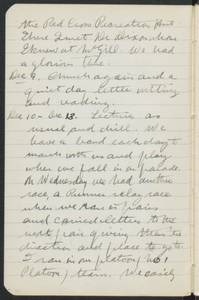 the Red Cross Recreation Hut
There I met Dr. Dixon whom
I knew at McGill. We had
a glorious talk.
Dec 9. Church again and a
quiet day letter writing
and reading.
Dec 10 - Dec 13. Lectures as
usual and drill. We
have a band each day to
march with us and play
when we fall in on parade.
On Wednesday we had another
race a runner relay race
when we ran in pairs
and carried letters to the
next pair giving them the
direction and place to go to.
I ran in our platoon, No 1
Platoon, team. We easily